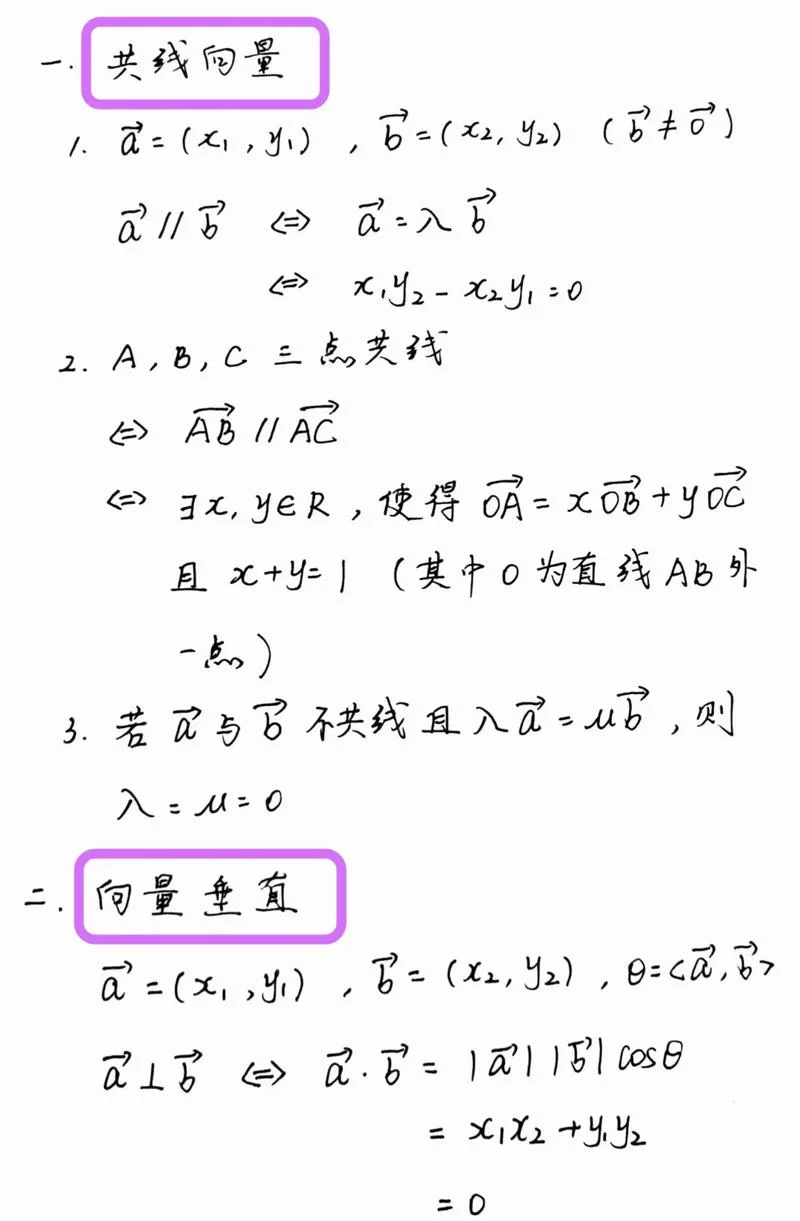 一. 共线向量
1. $\vec{a}=(x_1,y_1)$, $\vec{b}=(x_2,y_2)$ ($\vec{b}\neq\vec{0}$)
$\vec{a}//\vec{b}$ ⇔ $\vec{a}=λ\vec{b}$
⇔ $x_1y_2-x_2y_1=0$
2. A, B, C 三点共线
⇔ $\overrightarrow{AB}//\overrightarrow{AC}$
⇔ ∃x, y∈R, 使得 $\overrightarrow{OA}=x\overrightarrow{OB}+y\overrightarrow{OC}$
且 x+y=1 (其中O为直线AB外
一点)
3. 若 $\vec{a}$ 与 $\vec{b}$ 不共线且 $λ\vec{a}=μ\vec{b}$, 则
λ=μ=0
二. 向量垂直
$\vec{a}=(x_1,y_1)$, $\vec{b}=(x_2,y_2)$, θ=<$\vec{a}$,$\vec{b}$>
$\vec{a}⊥\vec{b}$ ⇔ $\vec{a}·\vec{b}=|\vec{a}||\vec{b}|cosθ$
$=x_1x_2+y_1y_2$
=0